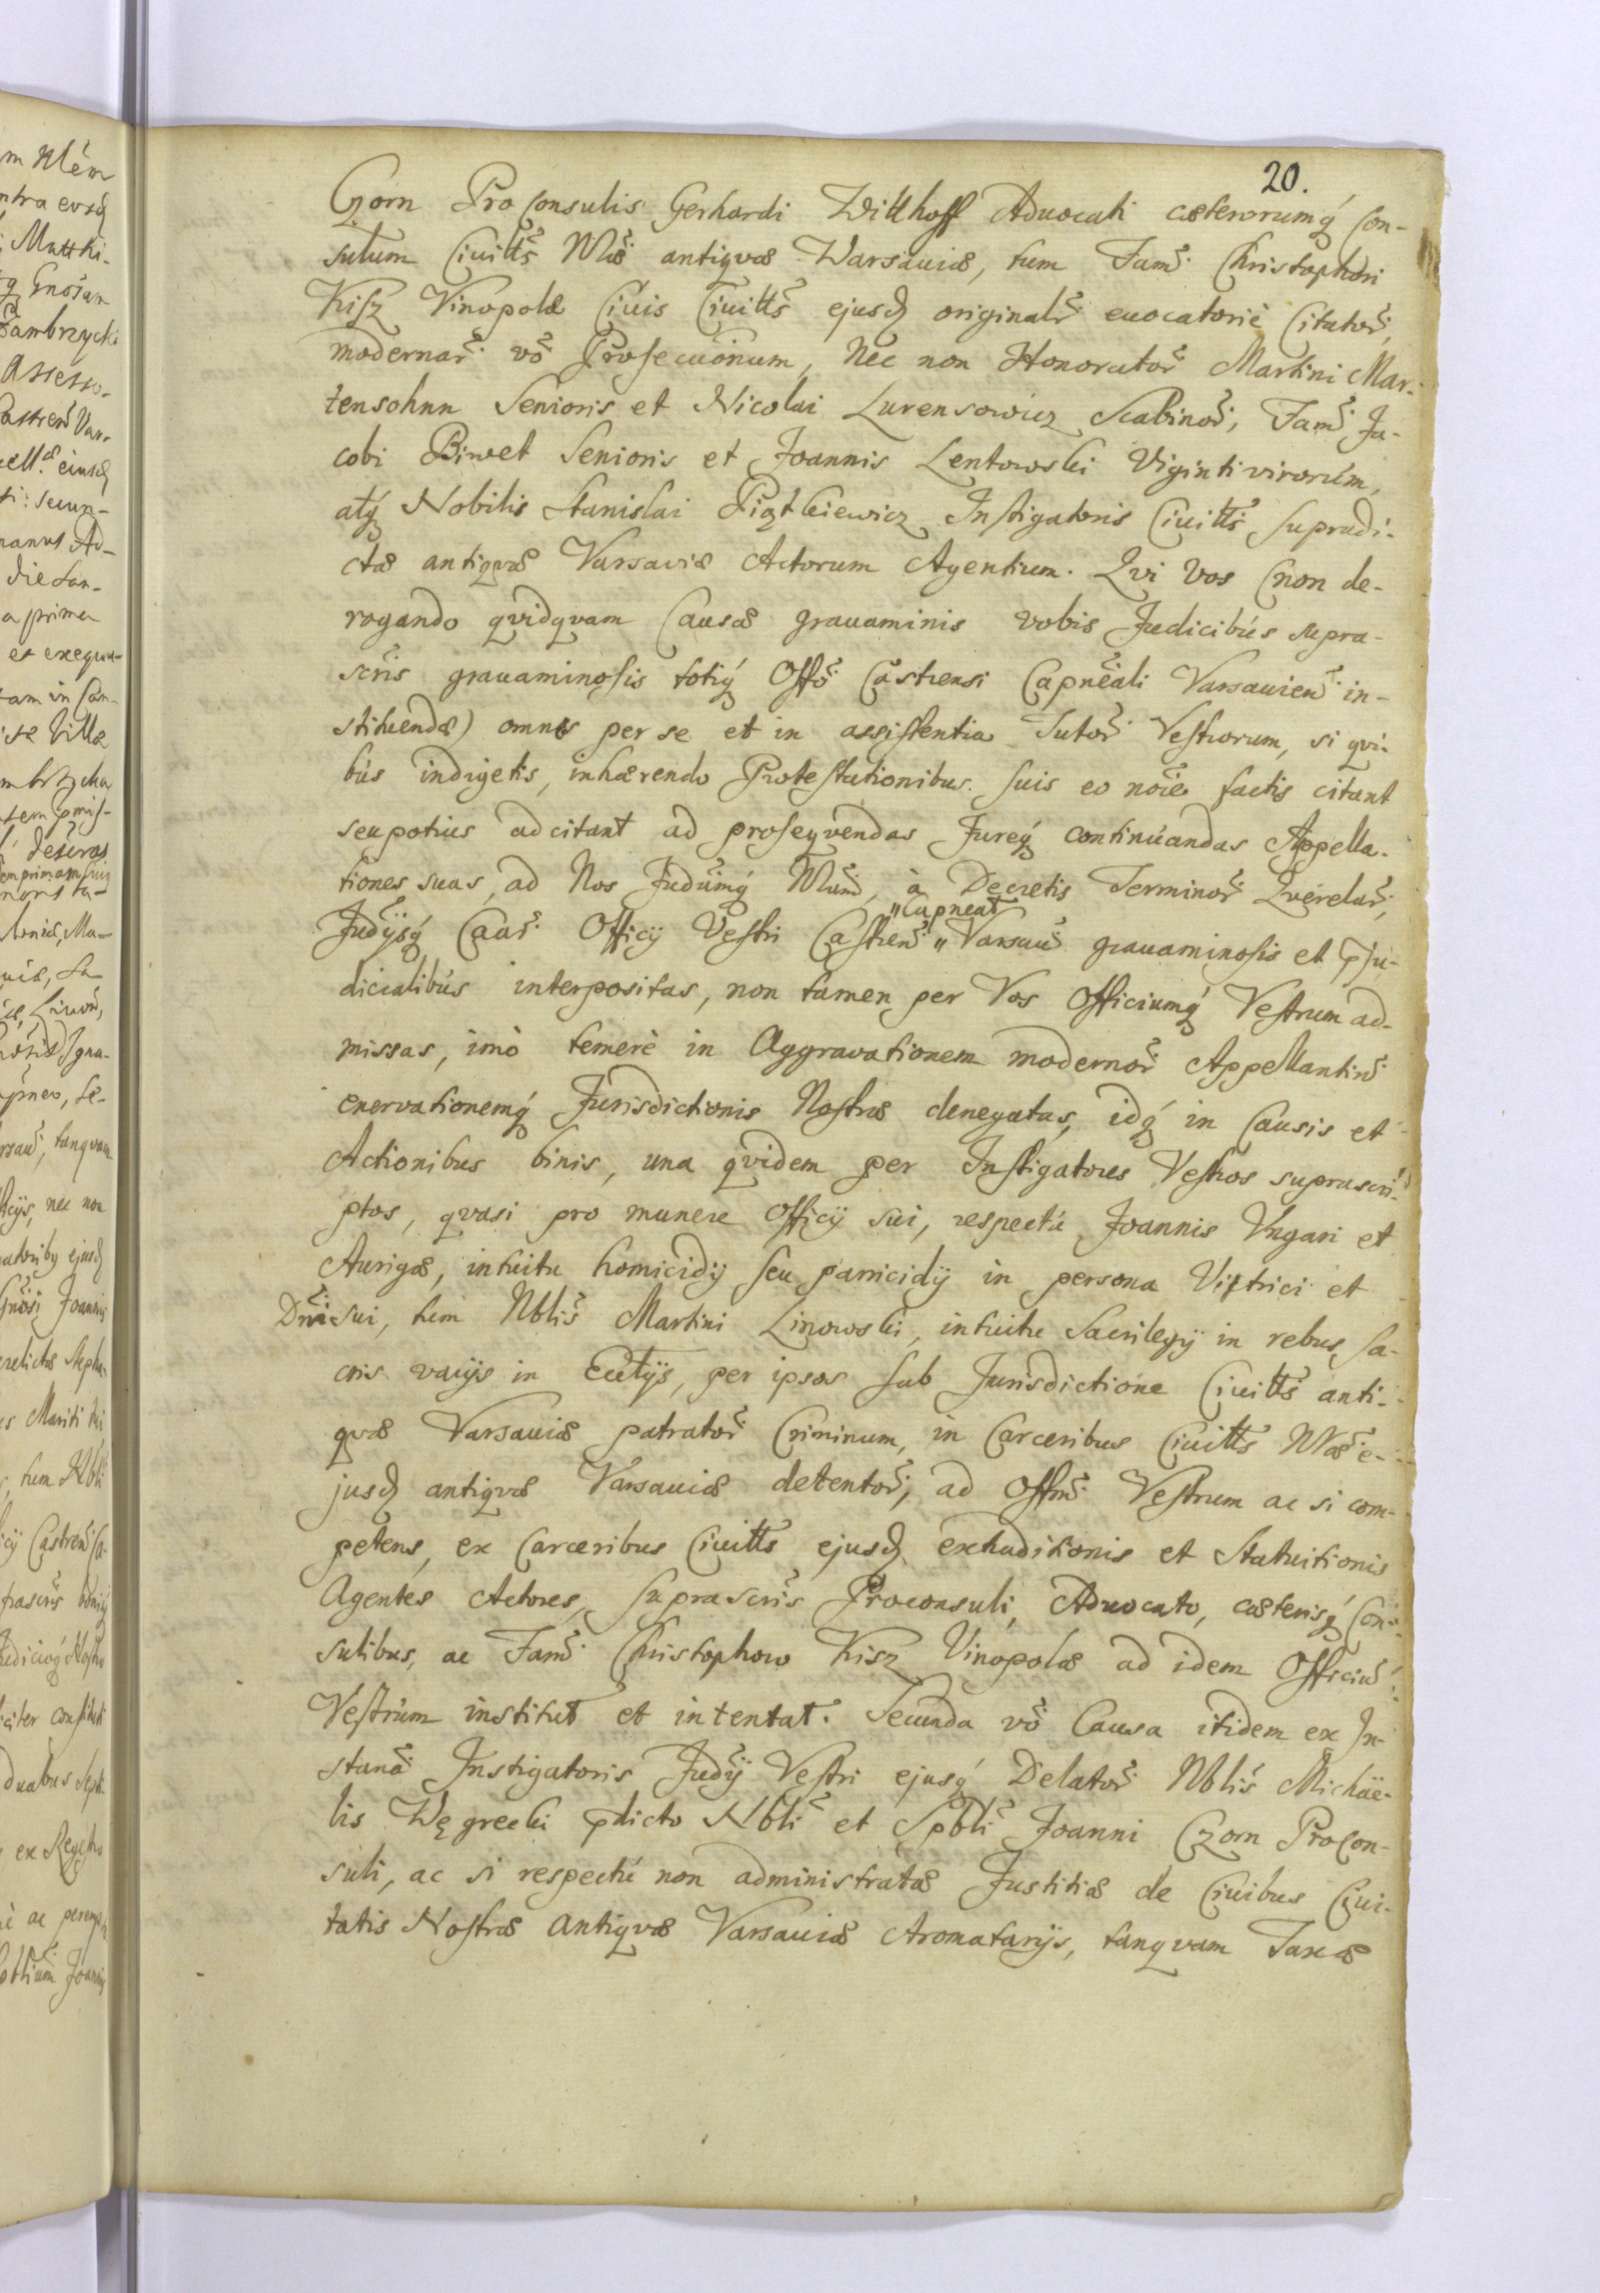 20.
Czorn Proconsulis Gerhardi Witthoff Aduocati cæterorumq́ Con-
sulum Ciuittš Nræ antiqvæ Warsauiæ, tum Fam̃ Christophori
Kisz Vinopolæ Ciuis Ciuittš ejusd originalr̃ euocatoriè Citator̃,
modernar̃ võ Prosecuõnum, Nec non Honorator̃ Martini Mar-
tensohnn Senioris et Nicolai Lurensowicz Scabinor̃, Fam̃ Ja-
cobi Birvet Senioris et Joannis Lentowski Vigintivirorúm,
atq́ Nobilis Stanislai Piątkiewicz Instigatoris Ciuittš supradi-
ctæ antiqvæ Varsaviæ Actorum Agentium. Qvi Vos (non de-
rogando qvidqvam Causæ grauaminis vobis Judicibús supra-
scr̃is grauaminosis totiq́ Offõ Castrensi Capneãli Varsauien̄ in-
stituendæ) omnes per se et in assistentia Tutor̃ Vestrorum, si qvi-
bús indigetis, inhærendo Protestationibus suis eo noĩe factis citant
seu potius adcitant ad proseqvendas Jureq́ continúandas Appella-
tiones suas, ad Nos Judiũmq́ Nrum̃, à Decretis Terminor̃ Qverelar̃,
"Capneal̃
Judỹsq́ Caar̃ Officij Vestri Castren̄ " Varsau̅ grauaminosis et pju-
dicialibús interpositas, non tamen per Vos Officiumq́ Vestrum ad-
missas, imò temerè in Aggravationem modernor̃ Appellantiu̅
enervationemq́ Jurisdictionis Nostræ denegatas, idq́ in Causis et
Actionibus binis, una qvidem per Instigatores Vestros suprascri-
ptos, qvasi pro munere Officij sui, respectú Joannis Vngari et
Aurigæ, intuitu homicidij seu parricidij in persona Vitrici et
Dn̄i sui, tum Nbliš Martini Linowski, intuitu Sacrilegij in rebus sa-
cris varijs in Eccl̃ijs, per ipsos sub Jurisdictione Ciuittš anti-
qvæ Varsauiæ patrator̃ Criminum, in Carceribus Ciuittš Nræ e-
jusd antiqvæ Varsauiæ detentor̃, ad Offm̃ Vestrum ac si com-
petens, ex Carceribus Ciuittš ejusd extraditionis et Statuitionis
Agentes Actores, suprascr̃is Proconsuli, Aduocato, cæterisq́ Con-
sulibus, ac Fam̃ Christophoro Kisz Vinopolæ ad idem Officiu̅
Vestrúm institut̃ et intentat̃. Secunda võ Causa itidem ex In-
stanã Instigatoris Judỹ Vestri ejusq́ Delator̃ Nbliš Michäe-
lis Węgrecki pdicto Nblĩ et Spblĩ Joanni Czorn Procon-
suli, ac si respectú non administratæ Justitiæ de Ciuibus Ciui-
tatis Nostræ antiqvæ Varsauiæ Aromatarijs, tanqvam Taxæ